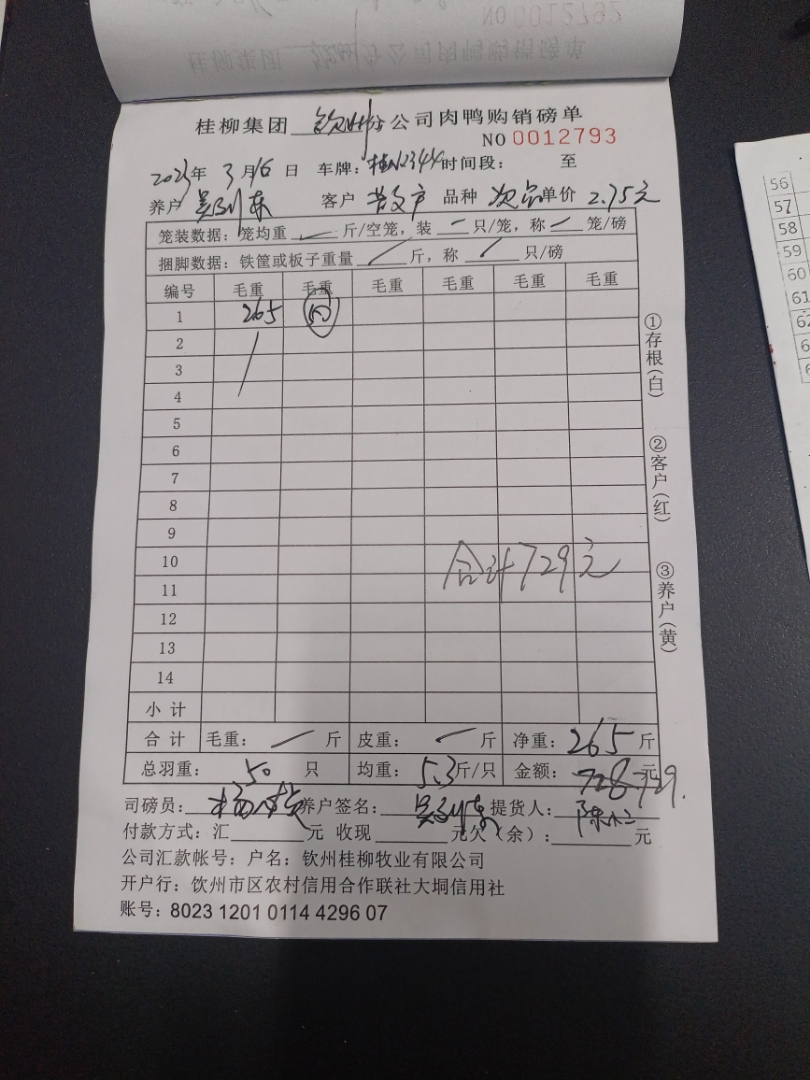 桂柳集团 钦州分公司肉鸭购销磅单
NO 0012793
2023年 3月16日 车牌: 时间段: 至
养户 客户 品种 次品 单价 2.75元
笼装数据：笼均重 斤/空笼，装 只/笼，称 笼/磅
捆脚数据：铁筐或板子重量 斤，称 只/磅
编号 毛重 毛重 毛重 毛重 毛重 毛重
1 265 50
2
3
4
5
6
7
8
9
10
11
12
13
14
合计729元
小计
合计 毛重： 斤 皮重： 斤 净重：265斤
总羽重： 50 只 均重：5.3斤/只 金额：728 729元
司磅员： 养户签名： 提货人：
付款方式：汇 元 收现 元欠（余）： 元
公司汇款帐号：户名：钦州桂柳牧业有限公司
开户行：饮州市区农村信用合作联社大垌信用社
账号：8023 1201 0114 4296 07
①存根(白)
②客户(红)
③养户(黄)
NO 0012792
56
57
58
59
60
61